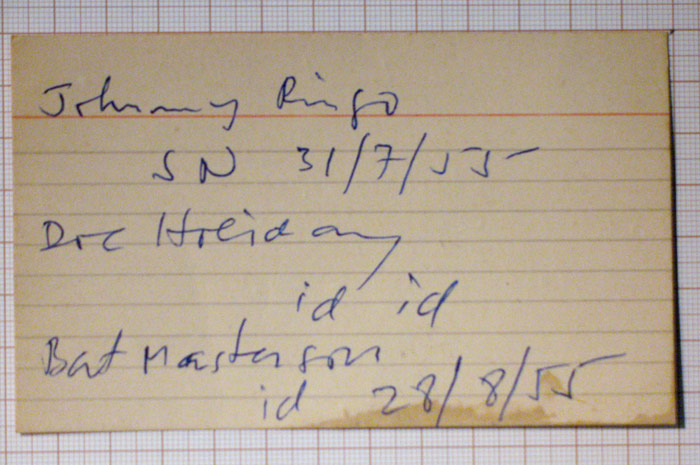 Johnny Ringo
SN 31/7/55
Doc Holiday
id id
Bat Masterson
id 28/8/55